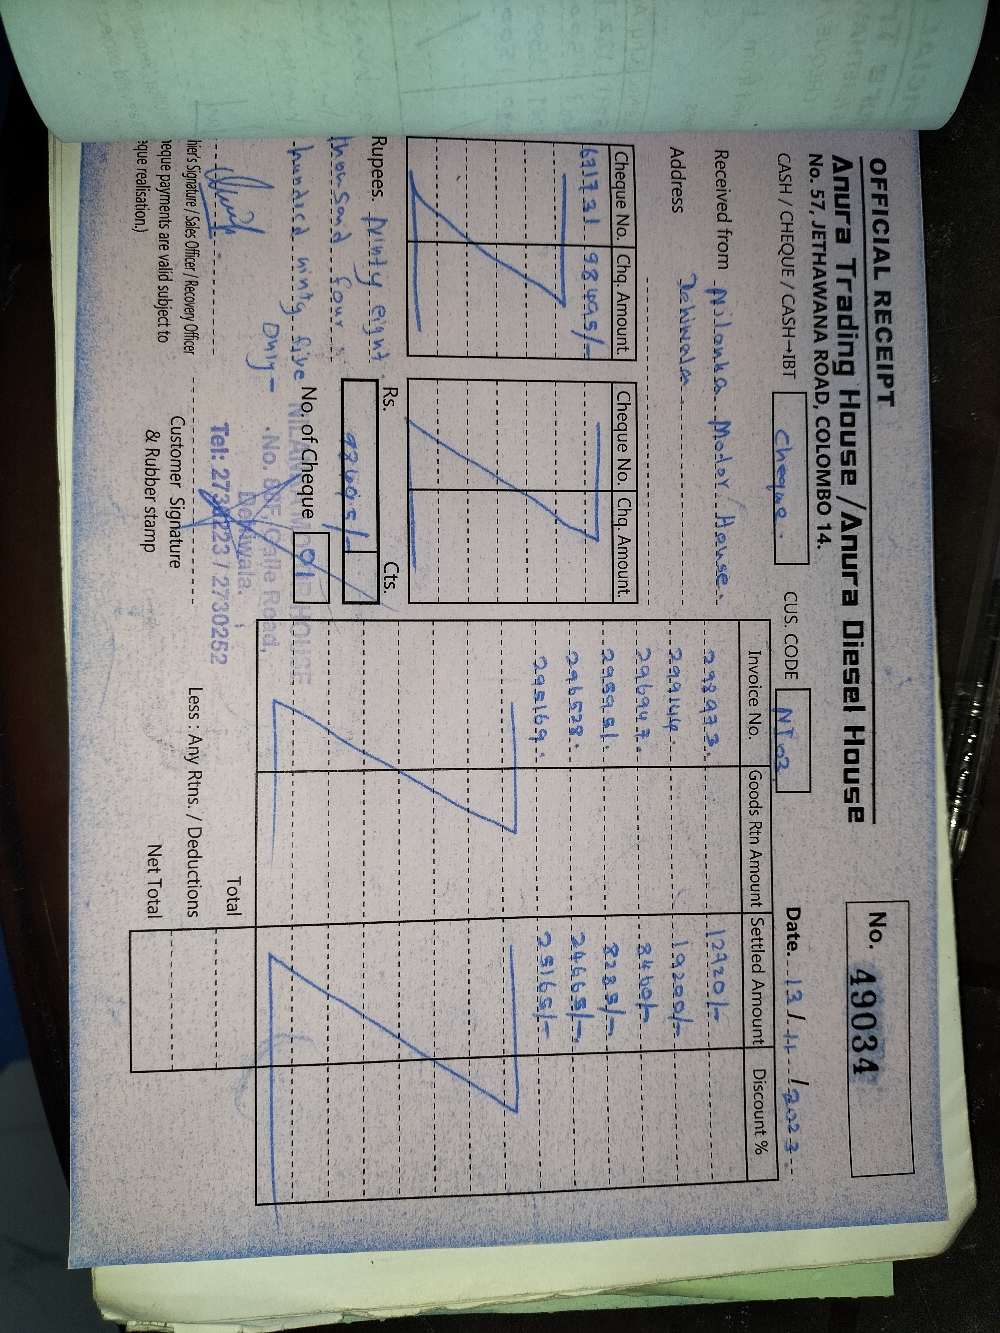 OFFICIAL RECEIPT
Anura Trading House / Anura Diesel House
No. 57, JETHAWANA ROAD, COLOMBO 14.
No. 49034
CASH / CHEQUE / CASH→IBT Cheque. CUS. CODE NI 02 Date. 13 / 11 / 2023
Received from Nilanka Motor House.
Address Dehiwala.
Cheque No. Chq. Amount Cheque No. Chq. Amount
631731 98495/-
Invoice No. Goods Rtn Amount Settled Amount Discount %
298973. 12920/-
299144. 19200/-
296943. 8460/-
295951. 8285/-
296528. 24465/-
295169. 25165/-
Rupees. Ninty eight
thousand four
hundred ninty five
Only-
Rs. Cts.
98495/-
No. of Cheque 01
NILANKA MOTOR HOUSE
No. 88F, Galle Road,
Dehiwala.
Tel: 2734223 / 2730252
hier's Signature / Sales Officer / Recovery Officer
Customer Signature
& Rubber stamp
heque payments are valid subject to
eque realisation.)
Total
Less : Any Rtns. / Deductions
Net Total